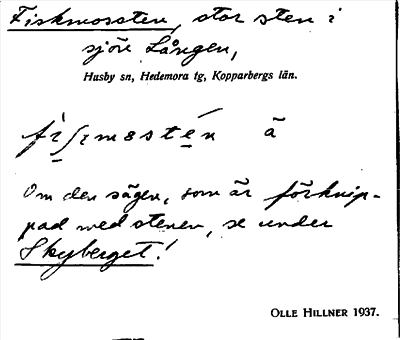 Fiskmossten, stor sten i
sjön Lången,
Husby sn, Hedemora tg, Kopparbergs län.
ä
Om den sägen, som är förknip-
pad med stenen, se under
Skyberget!
OLLE HILLNER 1937.